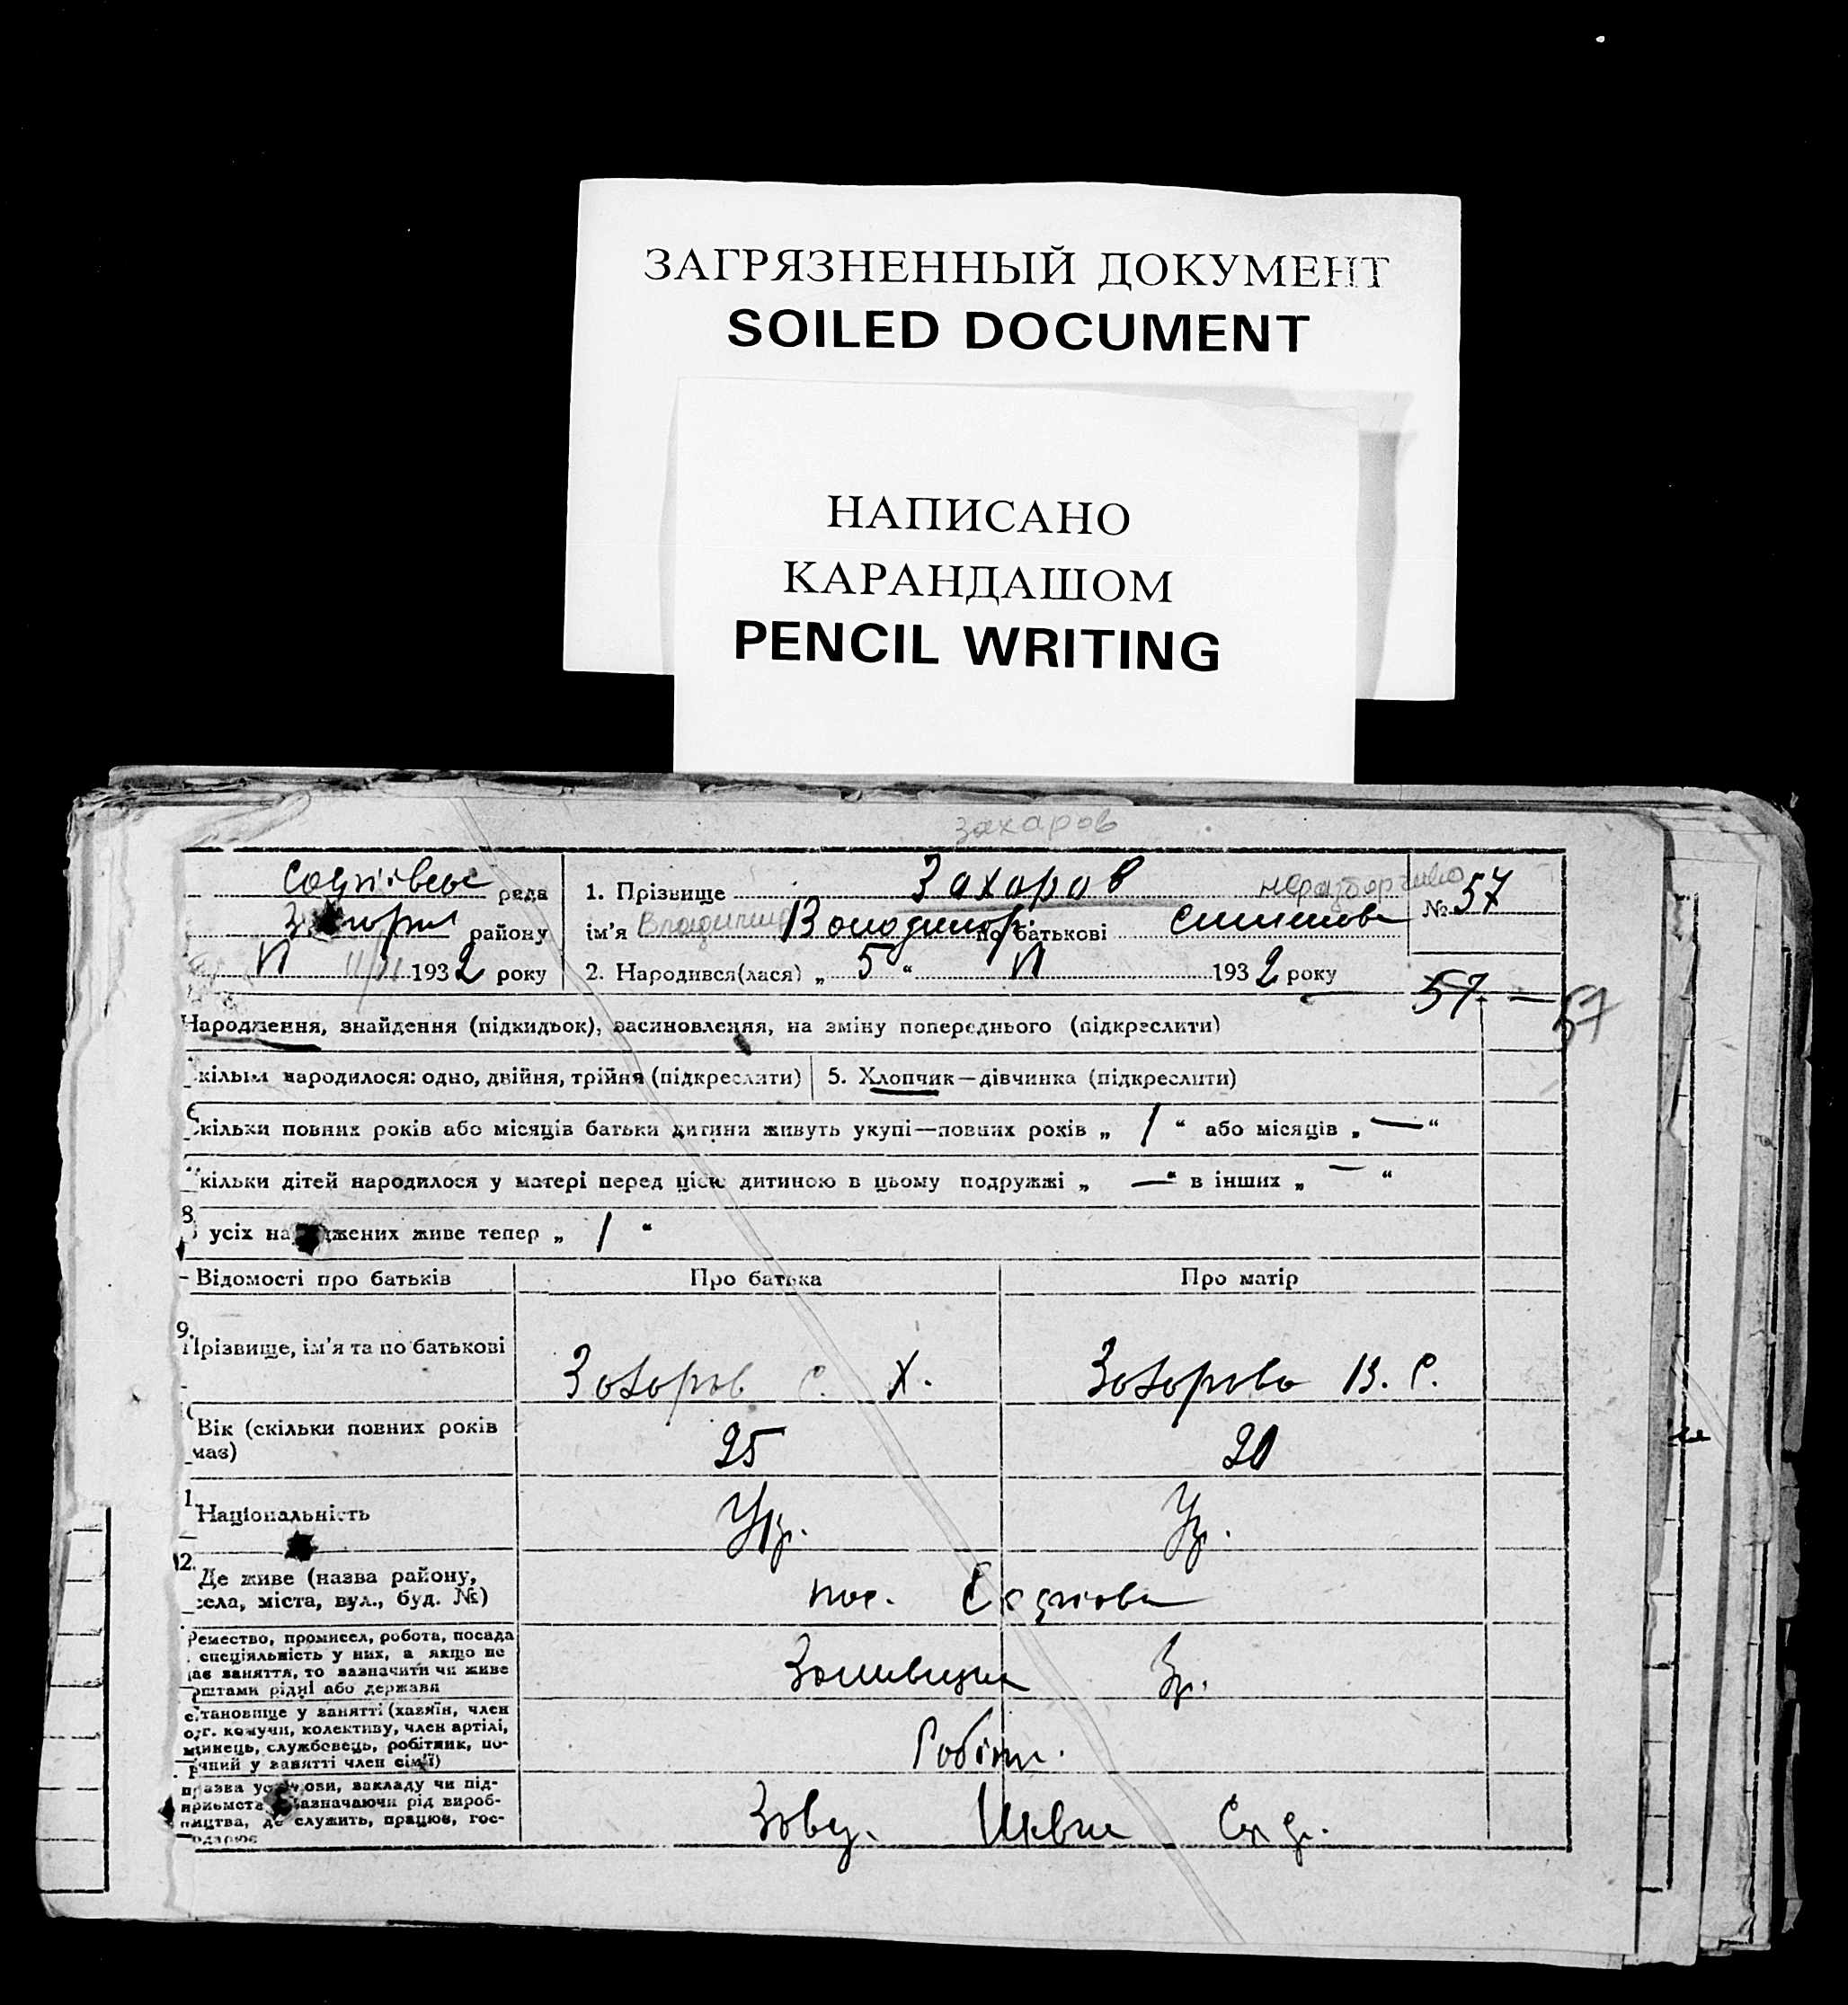 ЗАГРЯЗНЕННЫЙ ДОКУМЕНТ
SOILED DOCUMENT
НАПИСАНО
КАРАНДАШОМ
PENCIL WRITING
захаров
рада
1. Прізвище Захаров неразборчиво
№ 57
району
ім'я Владимир Володимир по батькові
VI 11/VI 1932 року
2. Народився(лася) „ 5 “ VI 1932 року
57 — 57
Народження, знайдення (підкидьок), засиновлення, на зміну попереднього (підкреслити)
кільки народилося: одно, двійня, трійня (підкреслити)
5. Хлопчик—дівчинка (підкреслити)
кільки повних років або місяців батьки дитини живуть укупі—повних років „ 1 “ або місяців „ — “
кільки дітей народилося у матері перед цією дитиною в цьому подружжі „ — “ в інших „ — “
8.
усіх народжених живе тепер „ 1 “
Відомості про батьків
Про батька
Про матір
9.
Прізвище, ім'я та по батькові
Захаров С. Х.
Захарова В. С.
Вік (скільки повних років
має)
25
20
1.
Національність
Укр.
12.
Де живе (назва району,
села, міста, вул., буд. №)
пос.
Ремество, промисел, робота, посада
спеціяльність у них, а якщо не
має заняття, то зазначити чи живе
коштами рідні або держави
становище у занятті (хазяїн, член
о,г. комуни, колективу, член артілі,
службовець, робітник, по-
член сім'ї)
Робітн.
назва установи, закладу чи під-
приємства зазначаючи рід вироб-
ництва, де служить, працює, гос-